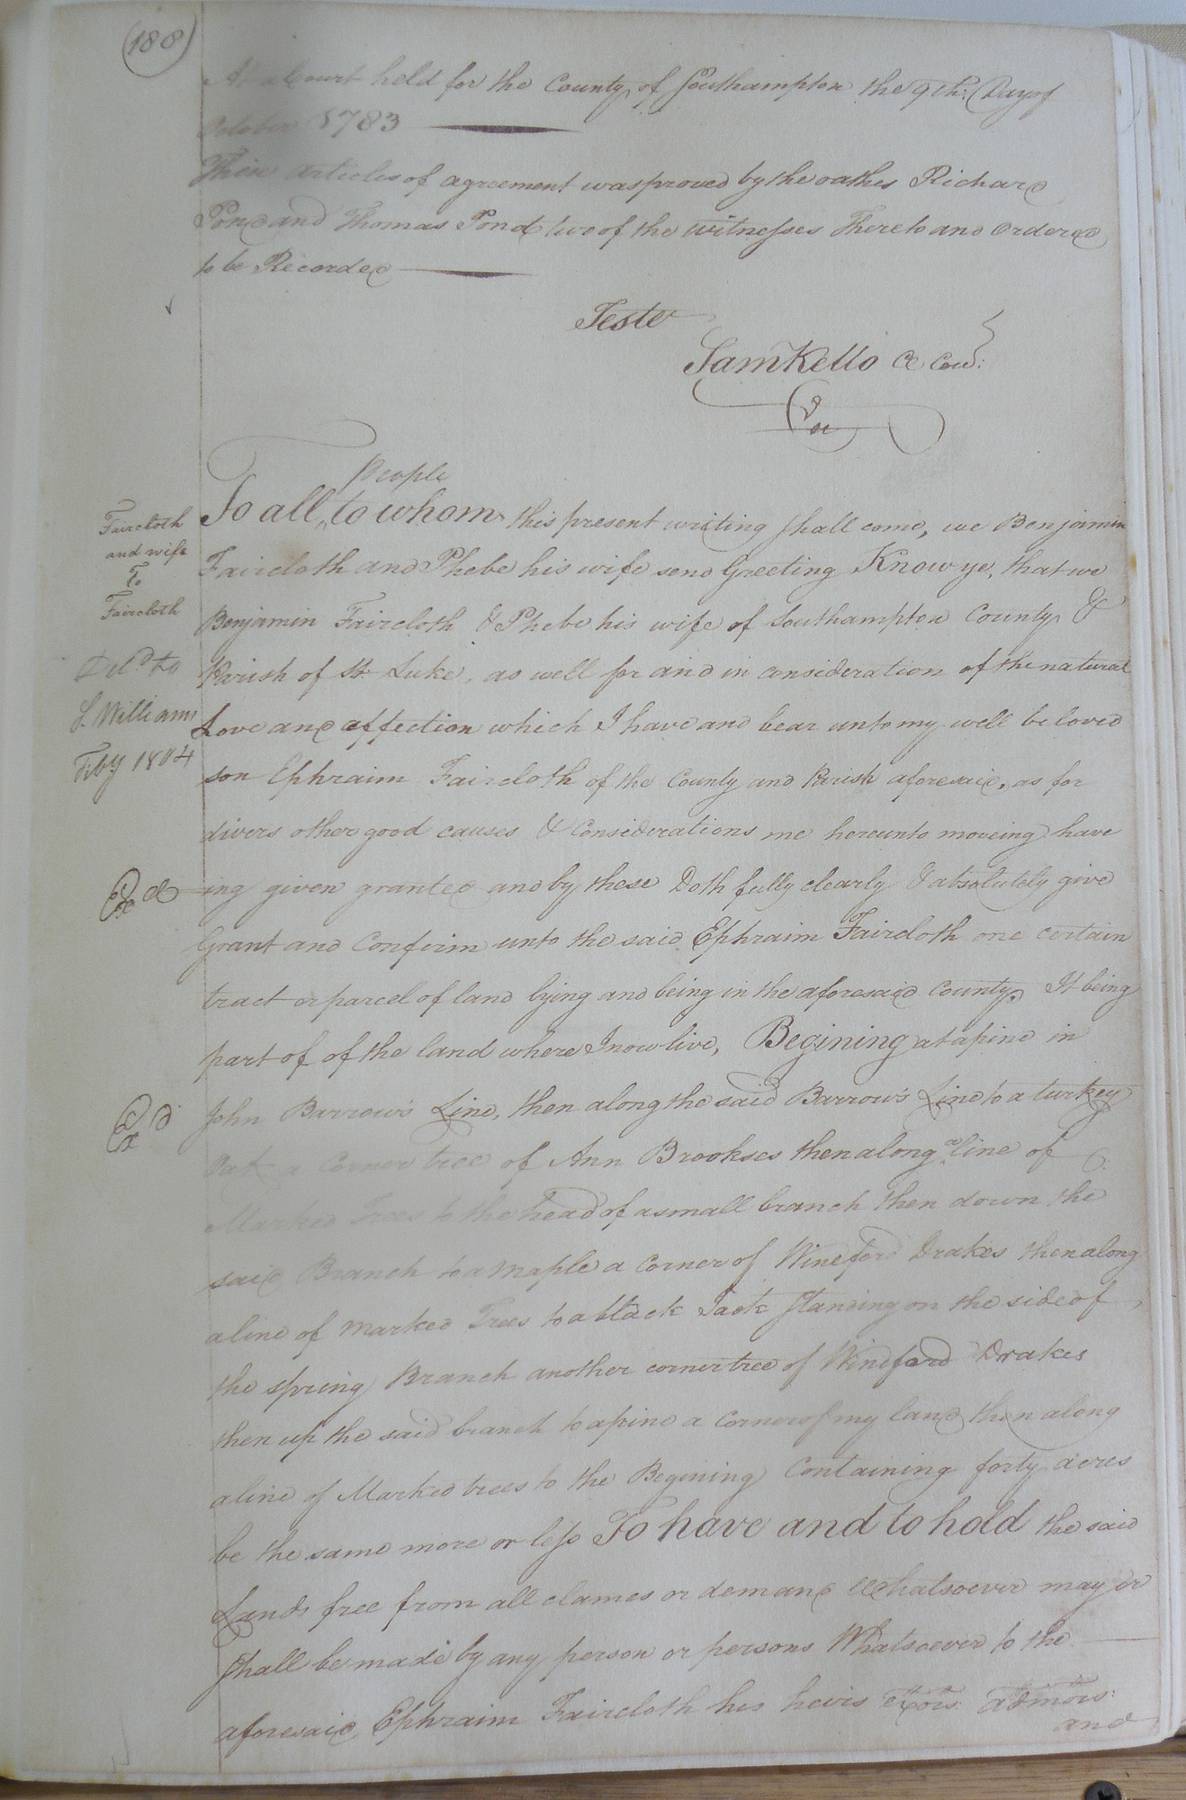 (188)
At a Court held for the County of Southampton the 9th: Day of
October 1783
These articles of agreement was proved by the oathes Richard
Pond and Thomas Pond two of the witnesses Thereto and ordered
to be Recorded
Teste
Sam Kello Cl Cou:
People
To all, to whom this present writing shall come, we Benjamin
Faircloth and Phebe his wife send Greeting Know ye, that we
Benjamin Faircloth & Phebe his wife of Southampton County &
Parish of St Luke, as well for and in consideration of the natural
Love and affection which I have and bear unto my well beloved
son Ephraim Faircloth of the County and Parish aforesaid, as for
divers other good causes & Considerations me hereunto moveing have
ing given granted and by these Doth fully clearly & absolutely give
Grant and Confirm unto the said Ephraim Faircloth one certain
tract or parcel of land lying and being in the aforesaid County. It being
part of of the land where I now live, Begining at a pine in
John Barrow's Line, then along the said Barrow's Line to a turkey
Oak a Corner tree of Ann Brookses then along a line of
Marked Trees to the head of a small branch then down the
said Branch to a Maple a Corner of Wineford Drakes then along
a line of Marked Trees to a black Jack standing on the side of
the spring Branch another corner tree of Wineford Drakes
then up the said branch to a pine a Corner of my land, then along
a line of Marked trees to the Begining Containing forty acres
be the same more or less To have and to hold the said
Land, free from all clames or demand Whatsoever may or
shall be made by any person or persons Whatsoever to the
aforesaid, Ephraim Faircloth his heirs Exors: admors:
and
Faircloth
and wife
To
Faircloth
Deld. to
S. Williams
Feby 1804
Exd
Exd